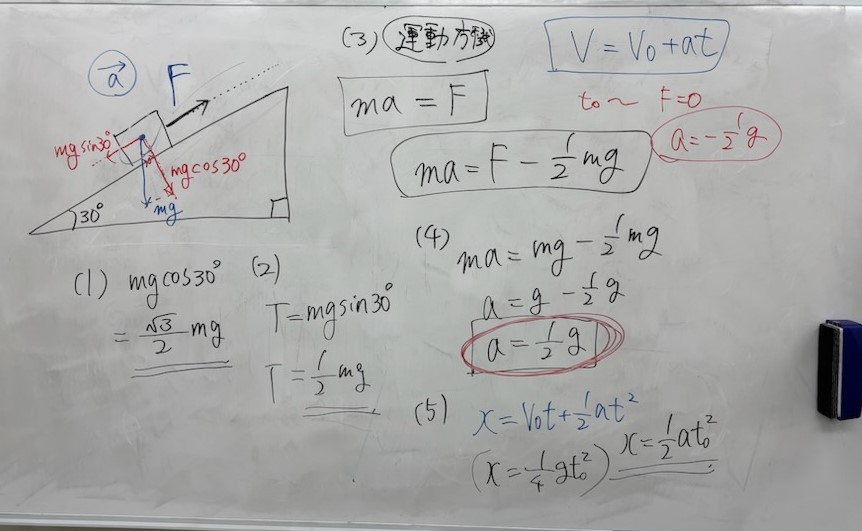 a→
F
mg sin30°
mg cos30°
mg
30°
(1) mg cos30°
= √3/2 mg
(2)
T = mg sin30°
T = 1/2 mg
(3) 運動方程式
ma = F
ma = F − 1/2 mg
V = V₀ + at
t₀ ~ F=0
a = −1/2 g
(4)
ma = mg − 1/2 mg
a = g − 1/2 g
a = 1/2 g
(5) x = V₀t + 1/2 at²
(x = 1/4 gt₀²) x = 1/2 at₀²